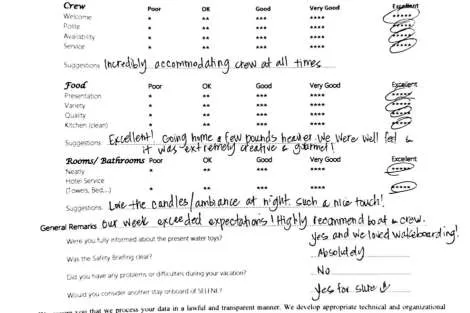 Crew Poor OK Good Very Good Excellent
Welcome * ** *** **** *****
Polite * ** *** **** *****
Availability * ** *** **** *****
Service * ** *** **** *****
Suggestions Incredibly accommodating crew at all times
Food Poor OK Good Very Good Excellent
Presentation * ** *** **** *****
Variety * ** *** **** *****
Quality * ** *** **** *****
Kitchen (clean) * ** *** **** *****
Suggestions Excellent! Going home a few pounds heavier. We were well fed &
it was extremely creative & gourmet!
Rooms/ Bathrooms Poor OK Good Very Good Excellent
Neatly * ** *** **** *****
Hotel Service
(Towels, Bed...) * ** *** **** *****
Suggestions Love the candles/ambiance at night. such a nice touch!
General Remarks Our week exceeded expectations! Highly recommend boat & crew.
Were you fully informed about the present water toys? Yes and we loved wakeboarding!
Was the Safety Briefing clear? Absolutely
Did you have any problems or difficulties during your vacation? No
Would you consider another stay onboard of SELENE? Yes for sure
that we process your data in a lawful and transparent manner. We develop appropriate technical and organizational